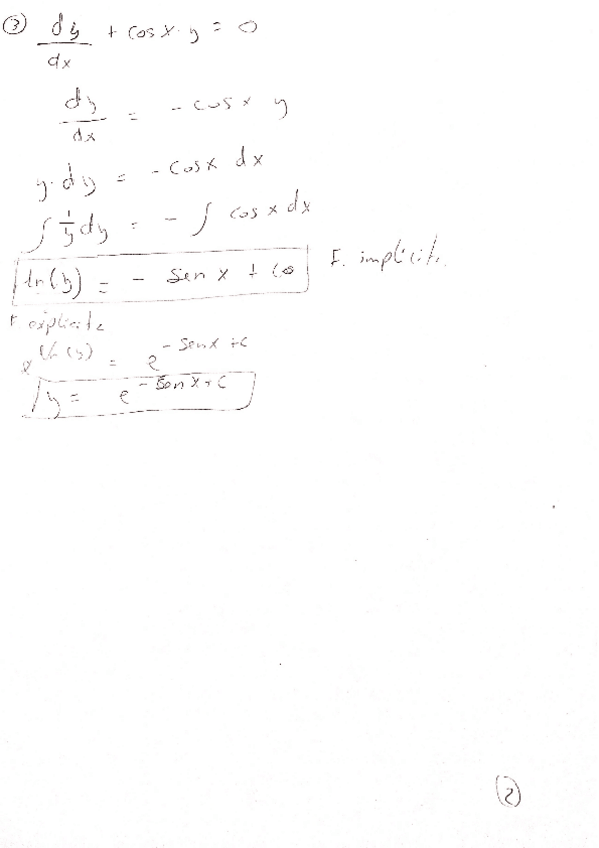 ③ dy/dx + cos x · y = 0
dy/dx = - cos x y
y · dy = - cos x dx
∫ 1/y dy = - ∫ cos x dx
ln(y) = - sen x + co F. implicit.
F explicita
e^ln(y) = e^-sen x + c
y = e^-sen x + c
②